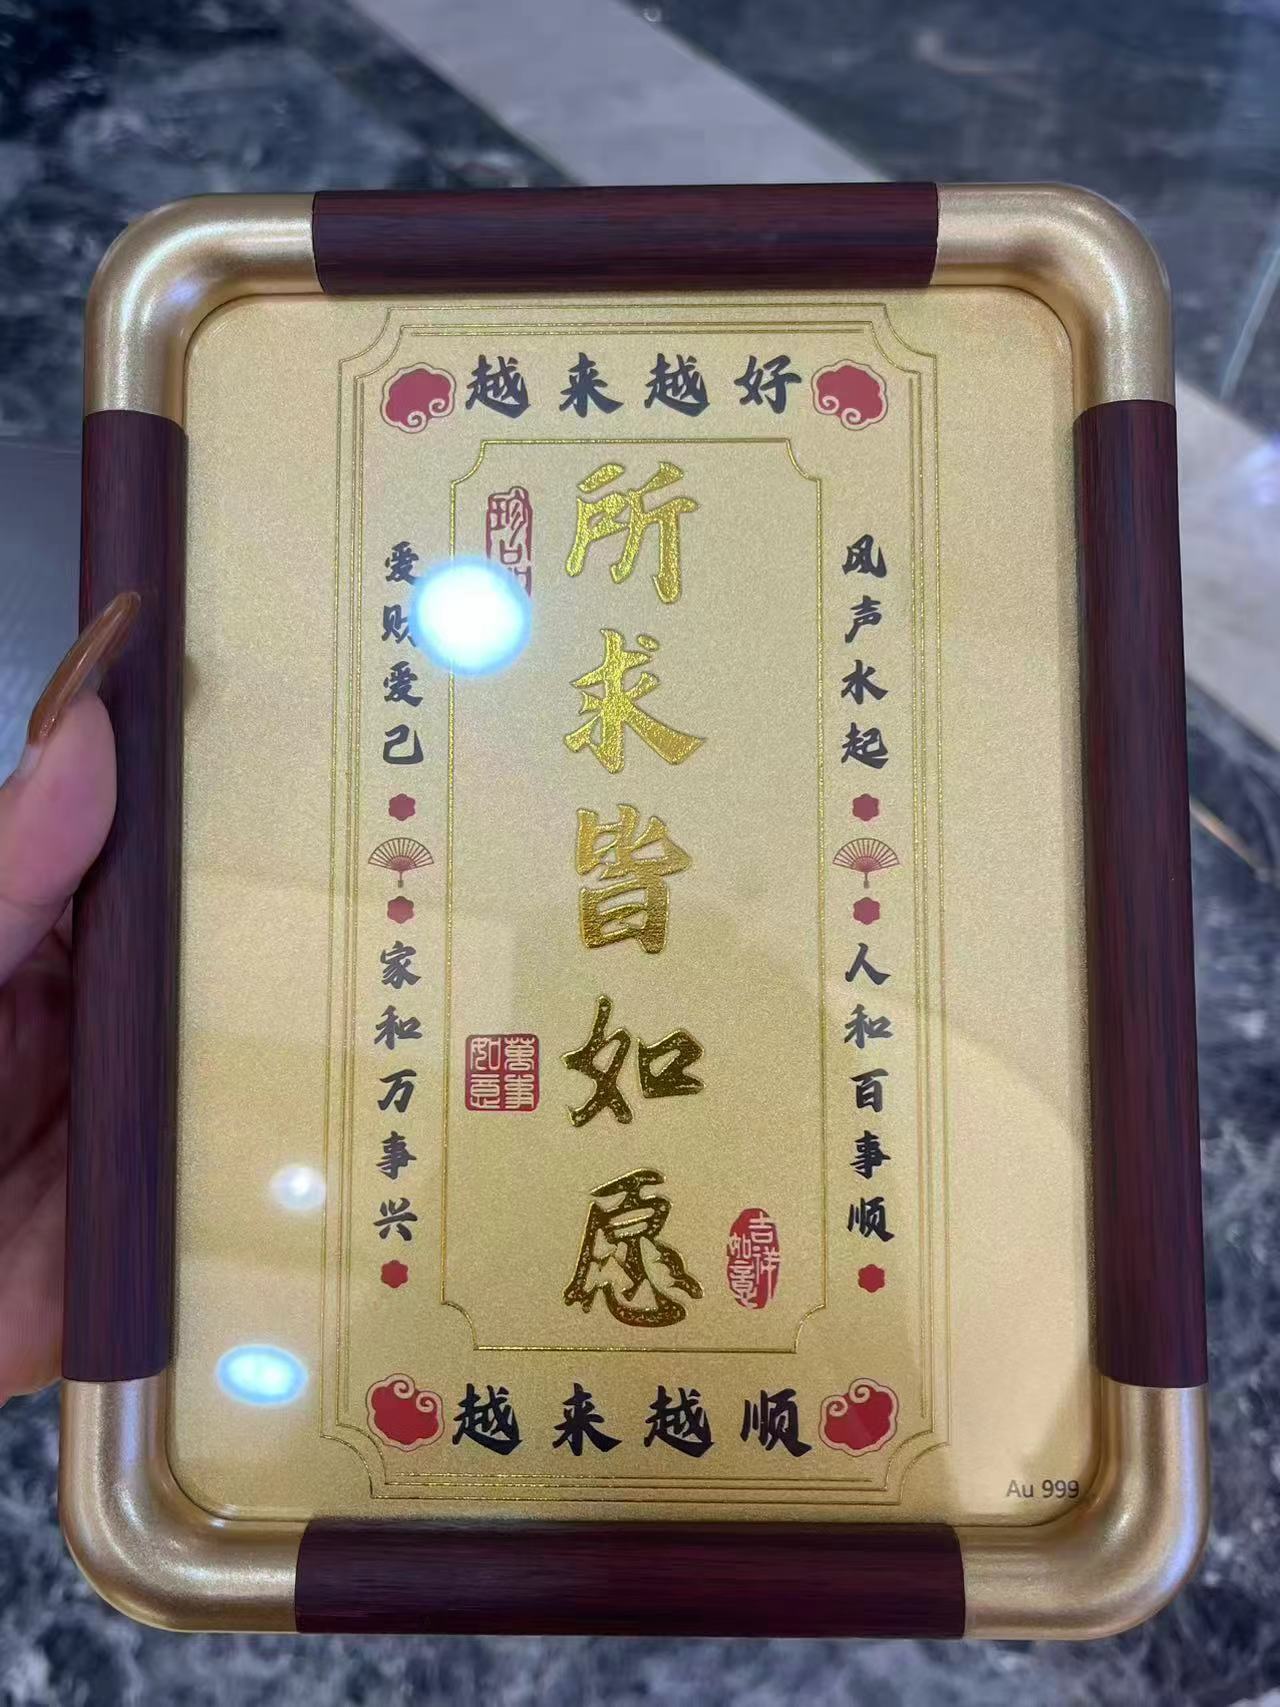 越来越好
风声水起
人和百事顺
所求皆如愿
爱财爱己
家和万事兴
珍品
萬事如意
吉祥如意
越来越顺
Au 999